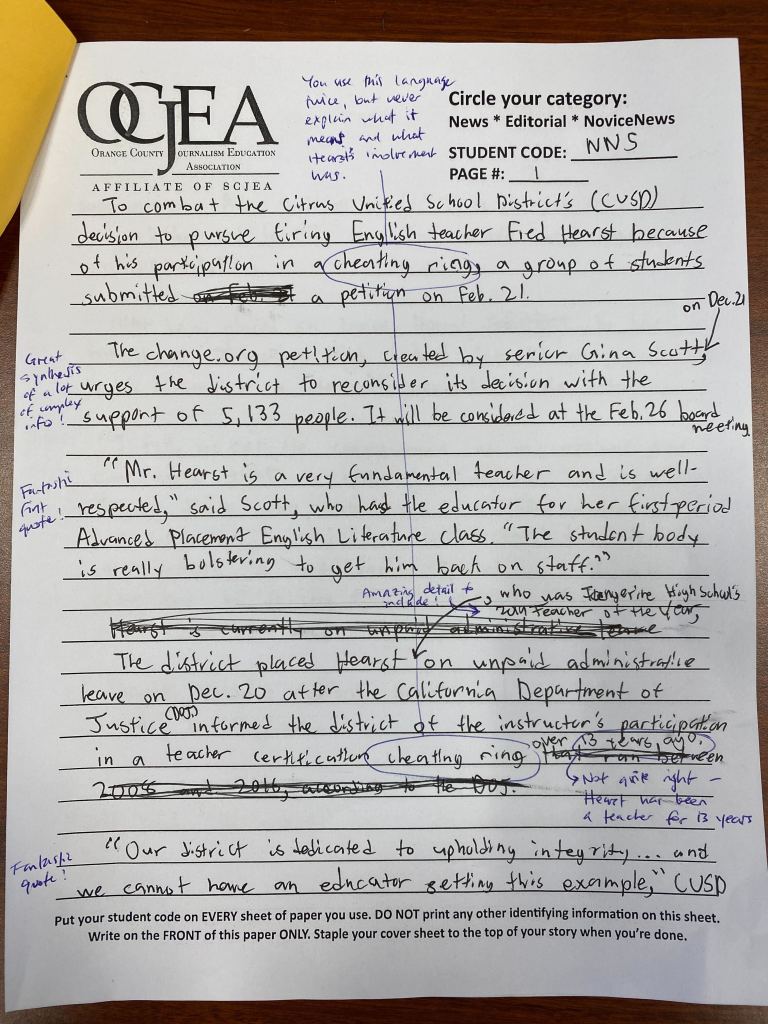 OCJEA
ORANGE COUNTY JOURNALISM EDUCATION
ASSOCIATION
AFFILIATE OF SCJEA
You use this language
twice, but never
explain what it
means and what
Hearst's involvement
was.
Circle your category:
News * Editorial * NoviceNews
STUDENT CODE: NNS
PAGE #: 1
To combat the Citrus Unified School District's (CUSD)
decision to pursue firing English teacher Fred Hearst because
of his participation in a cheating ring, a group of students
submitted on Feb. a petition on Feb. 21.
on Dec. 21
The change.org petition, created by senior Gina Scott,
urges the district to reconsider its decision with the
support of 5,133 people. It will be considered at the Feb. 26 board
meeting.
Great
synthesis
of a lot
of complex
info!
"Mr. Hearst is a very fundamental teacher and is well-
respected," said Scott, who had the educator for her first-period
Advanced Placement English Literature class. "The student body
is really bolstering to get him back on staff."
Fantastic
first
quote!
Amazing detail to
include!
, who was Tangerine High School's
2011 Teacher of the Year,
Hearst is currently on unpaid administrative leave
The district placed Hearst on unpaid administrative
leave on Dec. 20 after the California Department of
Justice (DOJ) informed the district of the instructor's participation
in a teacher certification cheating ring over 13 years ago.
that ran between
2008 and 2016, according to the DOJ.
Not quite right –
Hearst has been
a teacher for 13 years
"Our district is dedicated to upholding integrity... and
we cannot have an educator setting this example," CUSD
Fantastic
quote!
Put your student code on EVERY sheet of paper you use. DO NOT print any other identifying information on this sheet.
Write on the FRONT of this paper ONLY. Staple your cover sheet to the top of your story when you're done.